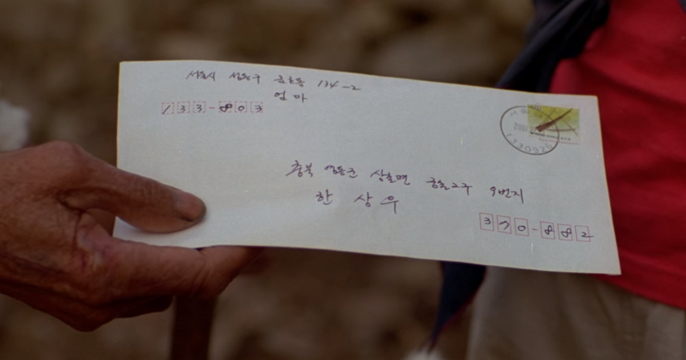 서울시 성동구 금호동 134-2
엄마
133-803
충북 영동군 상촌면 궁촌2구 9번지
한 상 우
370-882